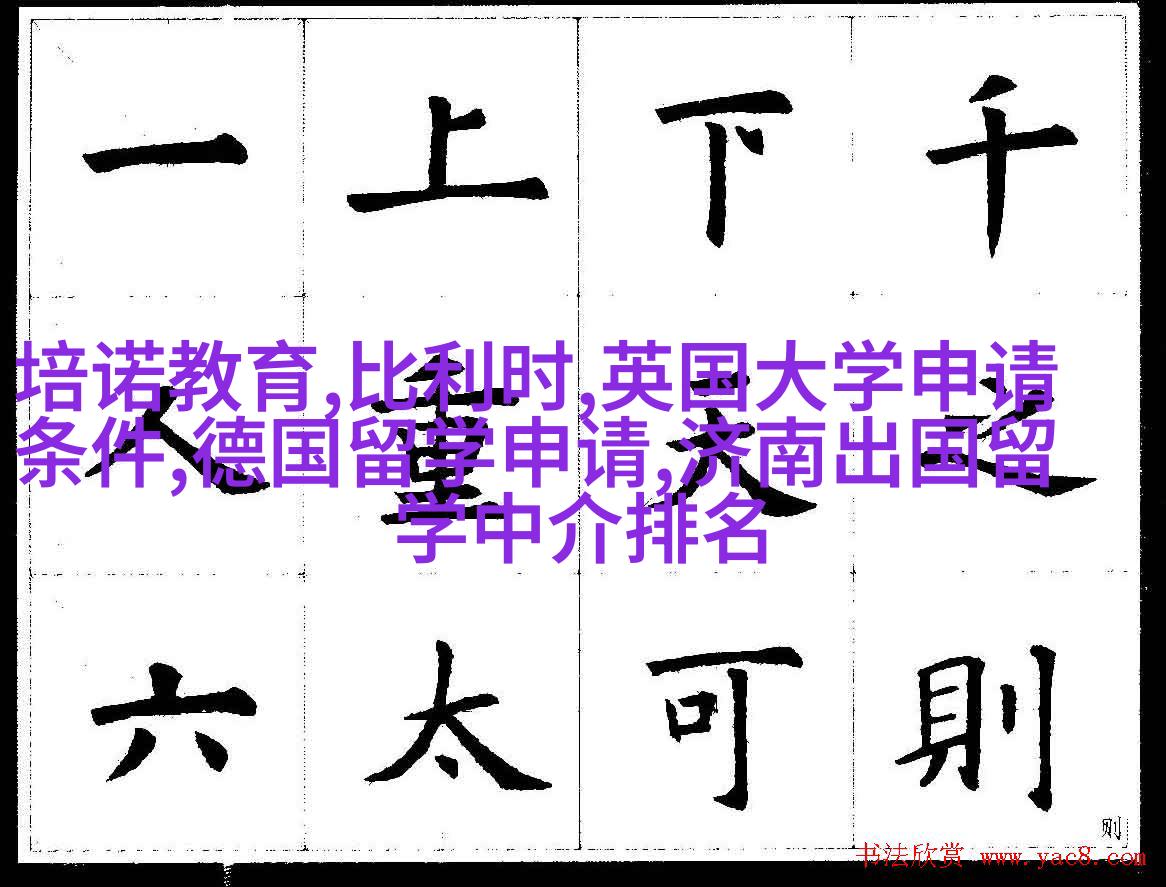 一 上 下 千
培诺教育,比利时,英国大学申请
条件,德国留学申请,济南出国留
学中介排名
人 重 大 之
六 太 可 則
则
书法欣赏 www.yac8.com